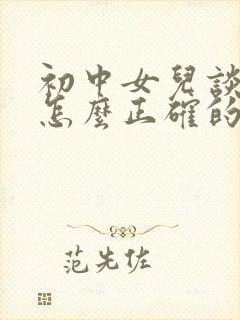 初中女兒談
怎麼正確的
范先佐